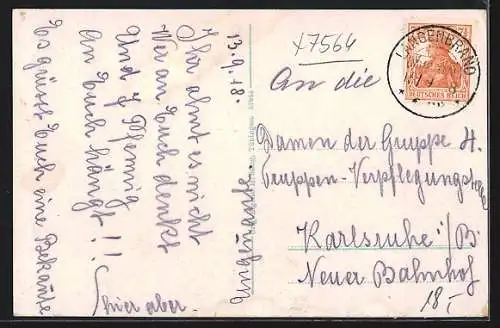 13.9.18.
Ihr ahnt es nicht
Wer an Euch denkt
Und 7 Pfennig
An Euch hängt!!
Es grüsst Euch eine Bekannte
hier aber
Ungenannte
x7564
An die
Damen der Gruppe H.
Truppen-Verpflegungs
Karlsruhe i/B.
Neuer Bahnhof
18,-
LANGENBRAND
DEUTSCHES REICH